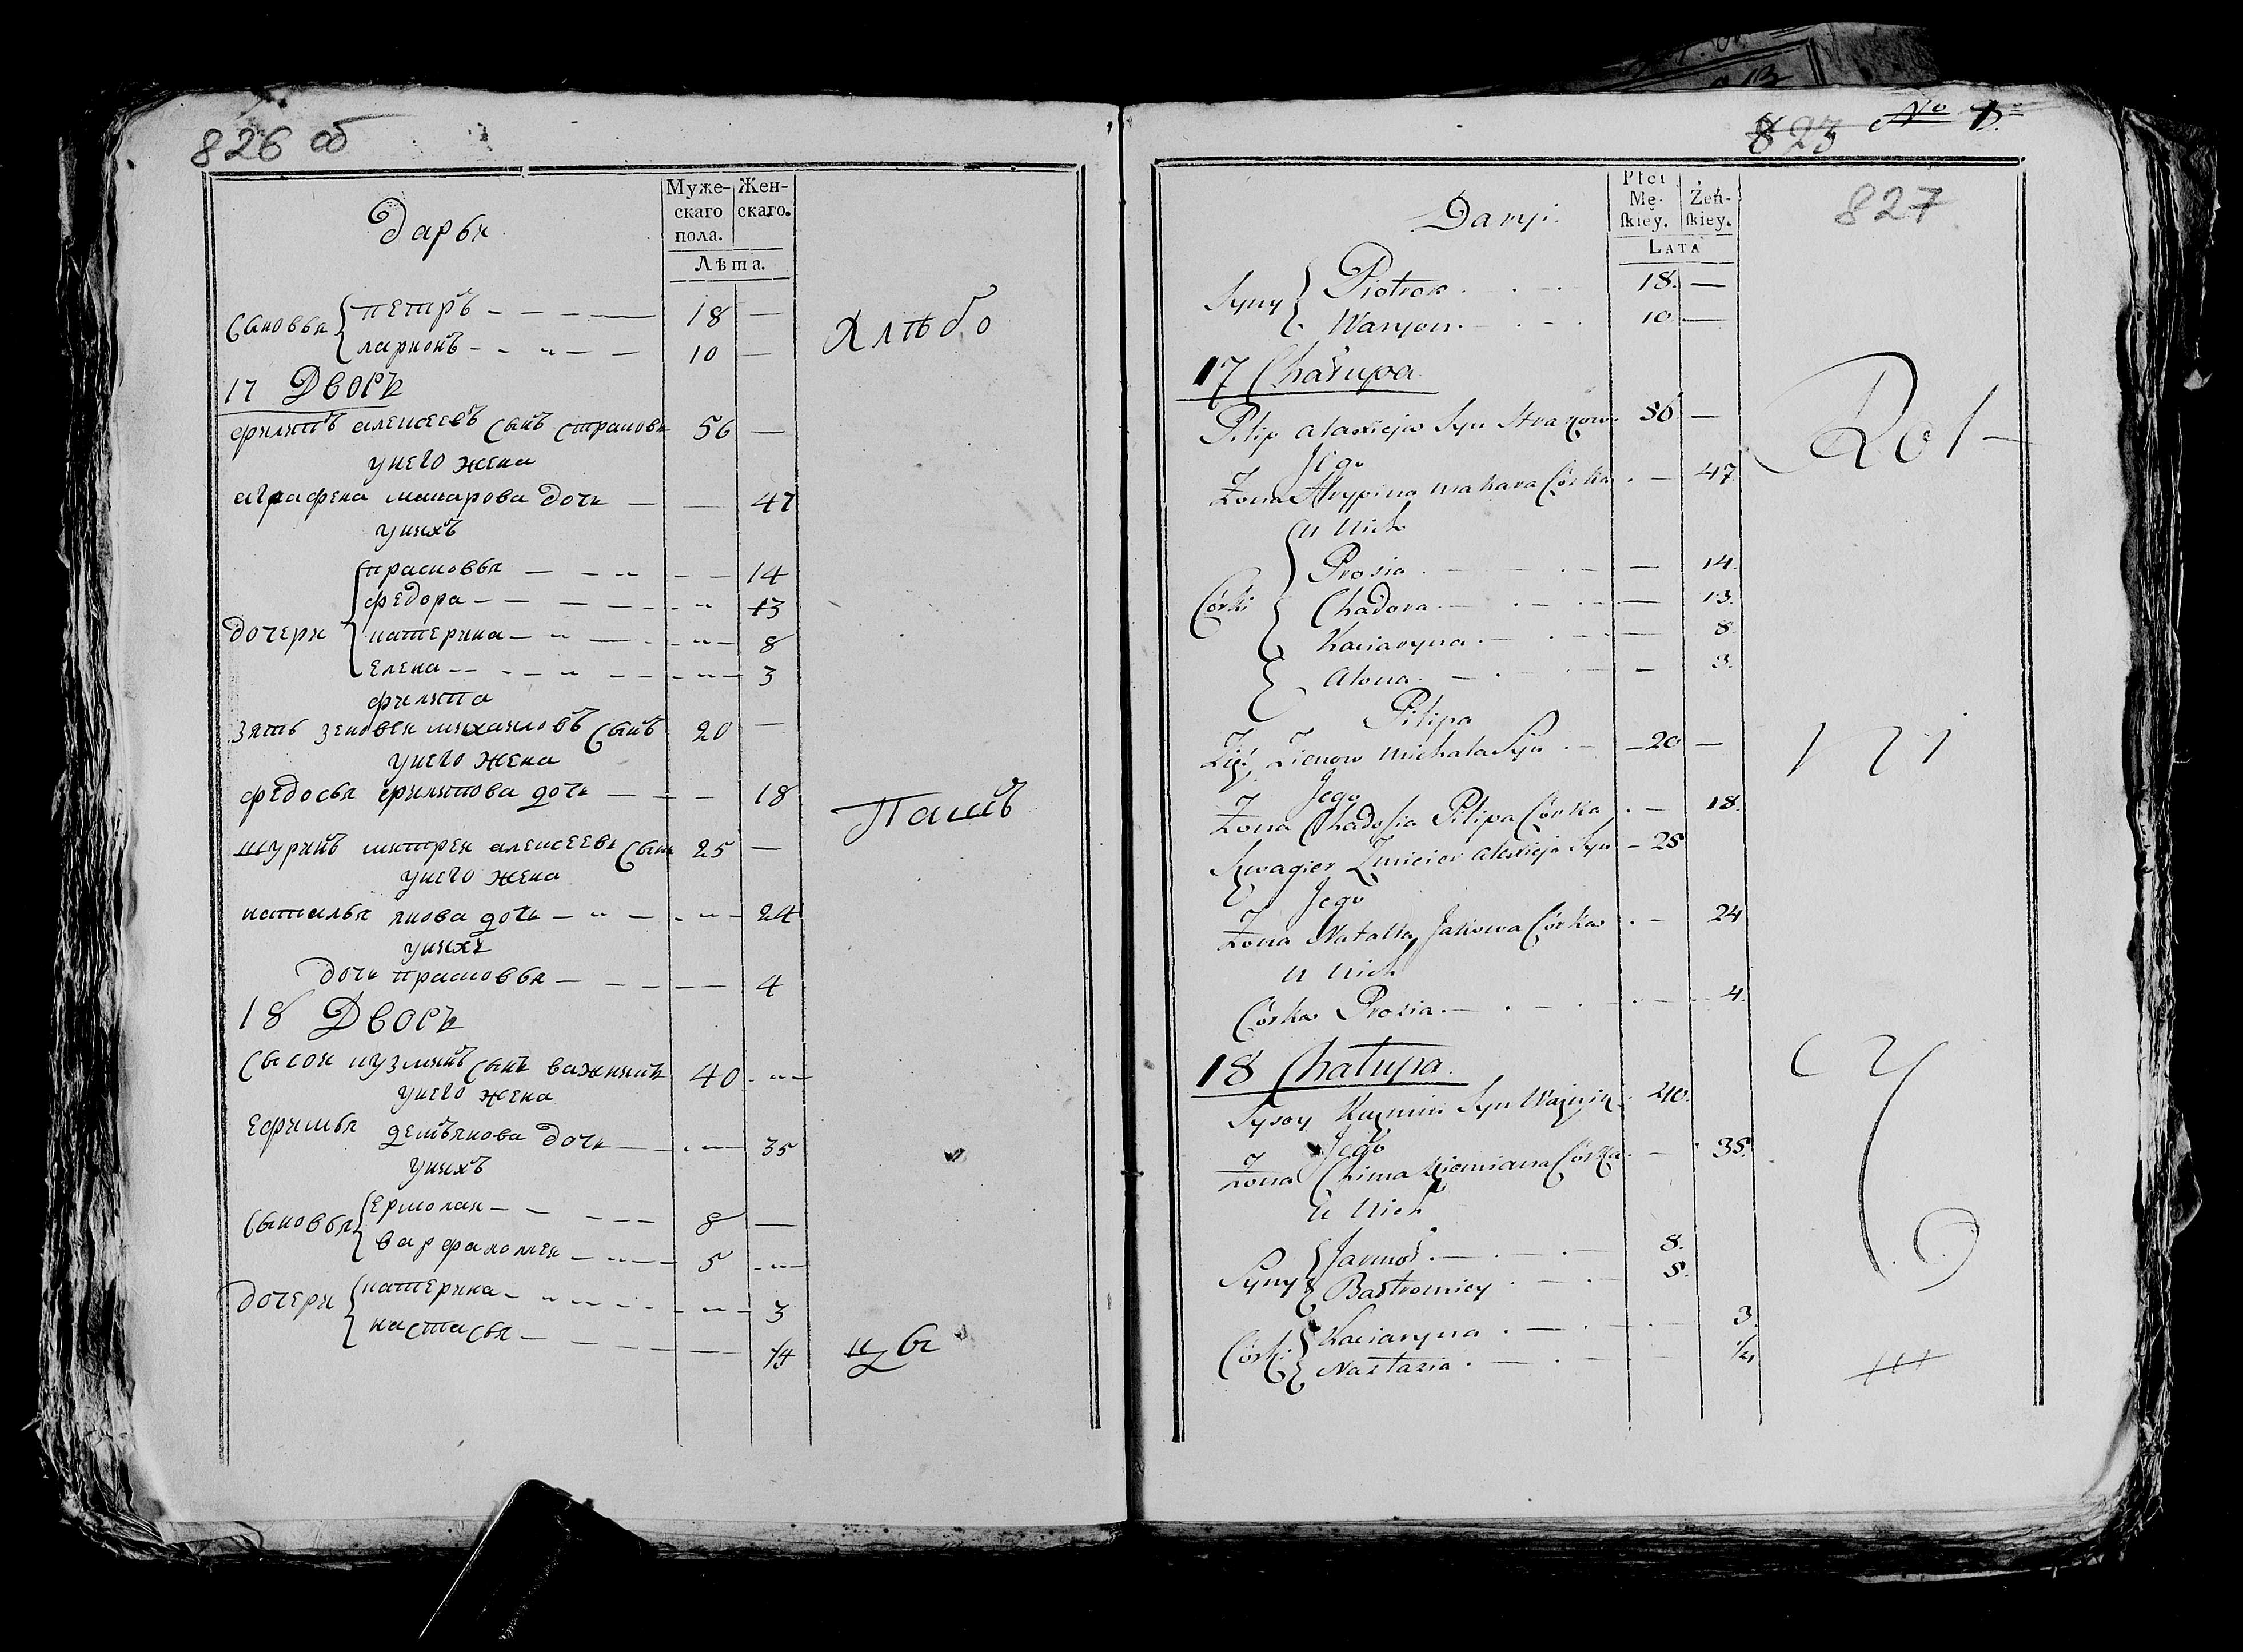 826 об
Дарьи
Муже-
скаго
пола.
Жен-
скаго.
Лѣта.
Сыновья
петръ 18 —
ларионъ 10 —
Хлѣбо
17 Дворъ
филипъ алексеевъ Сынъ страшовъ 56 —
унего жена
аграфена макарова дочь — 47
унихъ
дочери
прасковья — 14
федора — 13
катерина — 8
елена — 3
филипа
зять зеновеи михаиловъ Сынъ 20 —
унего жена
федосья филипова дочь — 18
Пашъ
шуринъ митреи алексеевъ Сынъ 25 —
унего жена
наталья якова дочь — 24
унихъ
дочь прасковья — 4
18 Дворъ
Сысои кузминъ Сынъ важникъ 40 —
унего жена
Ефимья демьянова дочь — 35
унихъ
Сыновья
Ермолаи — 8 —
варфаломеи — 5 —
дочери
катерина — 3
настасья —
цы
823 No
827
Daryi
Płci
Mę-
skiey.
Żeń-
skiey.
LATA
Syny
Piotron 18. —
Waryon 10 —
17 Chałupa
Rol—
Pilip alaxieja Syn 56 —
Jego
Zona Hrypina makara Córka — 47
u nich
Córki
Prosia — 14.
Chadora — 13.
Kaciaryna — 8.
alona — 3.
Pilipa
Zięć Zienow michala Syn — 20 —
ni
Jego
Zona Chadosia Pilipa Córka — 18.
Szwagier Zmicier alaxieja Syn — 25
Jego
Zona Natalla Jakowa Córka — 24
u nich
Córka Prosia — 4.
18 Chałupa.
cy
Sysoy Kuzmin Syn Ważnik 40.
Jego
Zona Chima Córka — 35.
u nich
Syny
Jarmoł — 8.
Bastromiey — 5.
Córki
Kaciaryna — 3.
Nastazia — 1/4